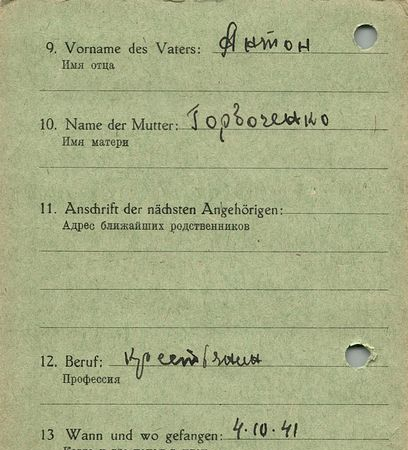 9. Vorname des Vaters: Антон
Имя отца
10. Name der Mutter: Горбоченко
Имя матери
11. Anschrift der nächsten Angehörigen:
Адрес ближайших родственников
12. Beruf:
Профессия
13 Wann und wo gefangen: 4.10.41